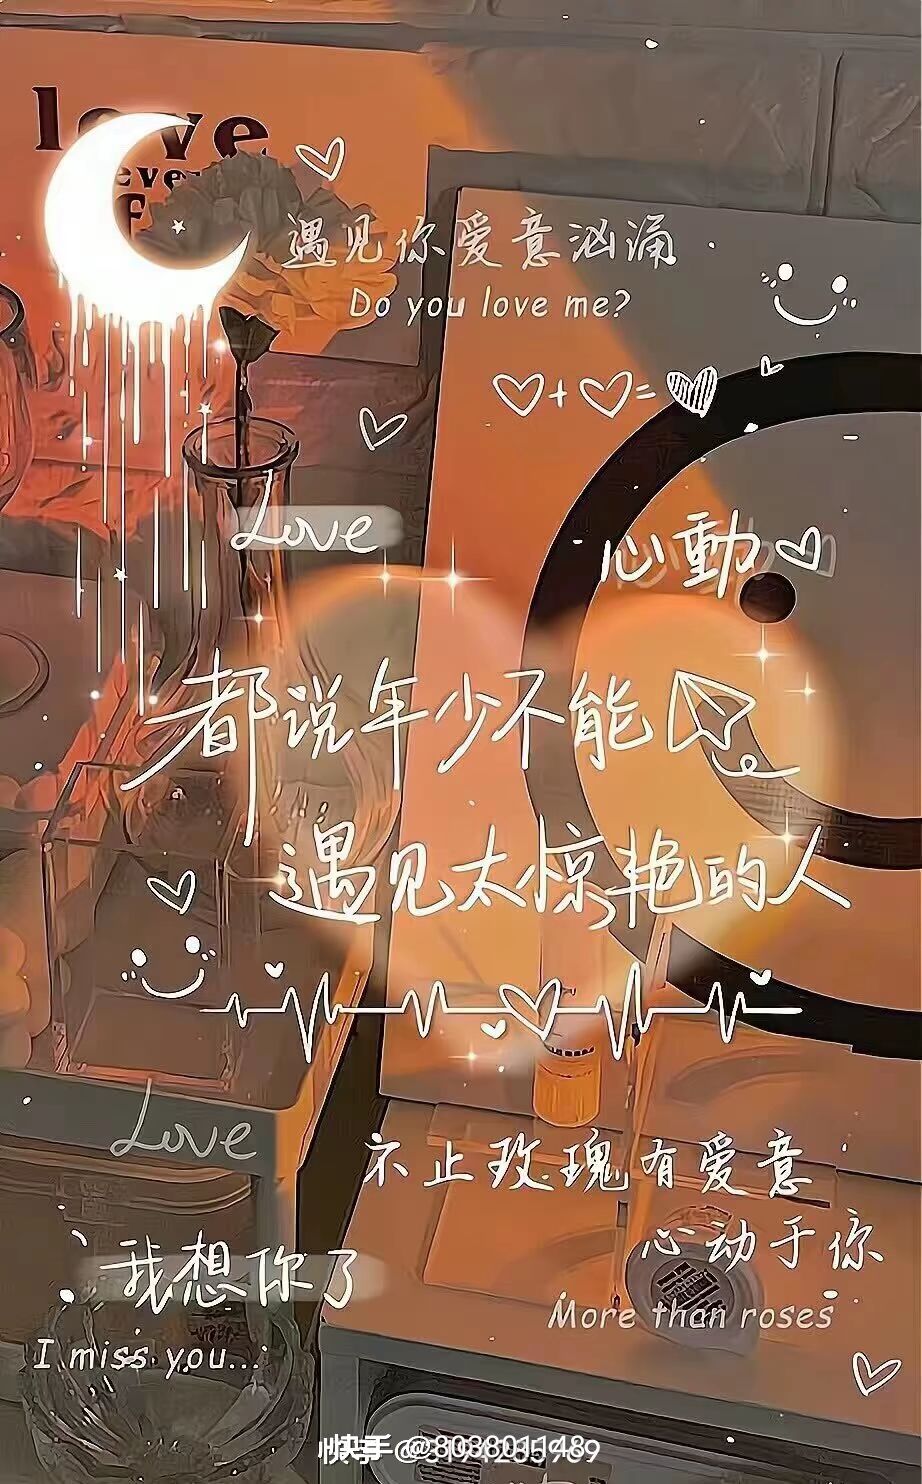 love
遇见你爱意汹涌
Do you love me?
Love
心動
都说年少不能
遇见太惊艳的人
Love
不止玫瑰有爱意
心动于你
More than roses
我想你了
I miss you...